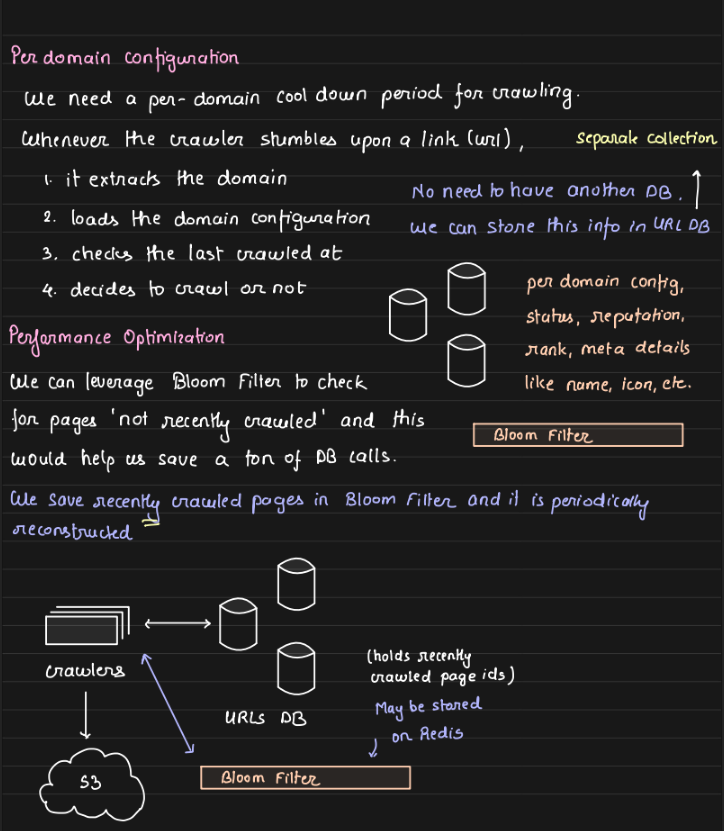 Per domain configuration
We need a per-domain cool down period for crawling.
Whenever the crawler stumbles upon a link (url),
separate collection
1. it extracts the domain
No need to have another DB.
2. loads the domain configuration
We can store this info in URL DB
3. checks the last crawled at
4. decides to crawl or not
per domain config,
status, reputation,
rank, meta details
like name, icon, etc.
Performance Optimization
We can leverage Bloom Filter to check
for pages 'not recently crawled' and this
would help us save a ton of DB calls.
Bloom Filter
We save recently crawled pages in Bloom Filter and it is periodically
reconstructed
crawlers
URLs DB
(holds recently
crawled page ids)
May be stored
on Redis
S3
Bloom Filter